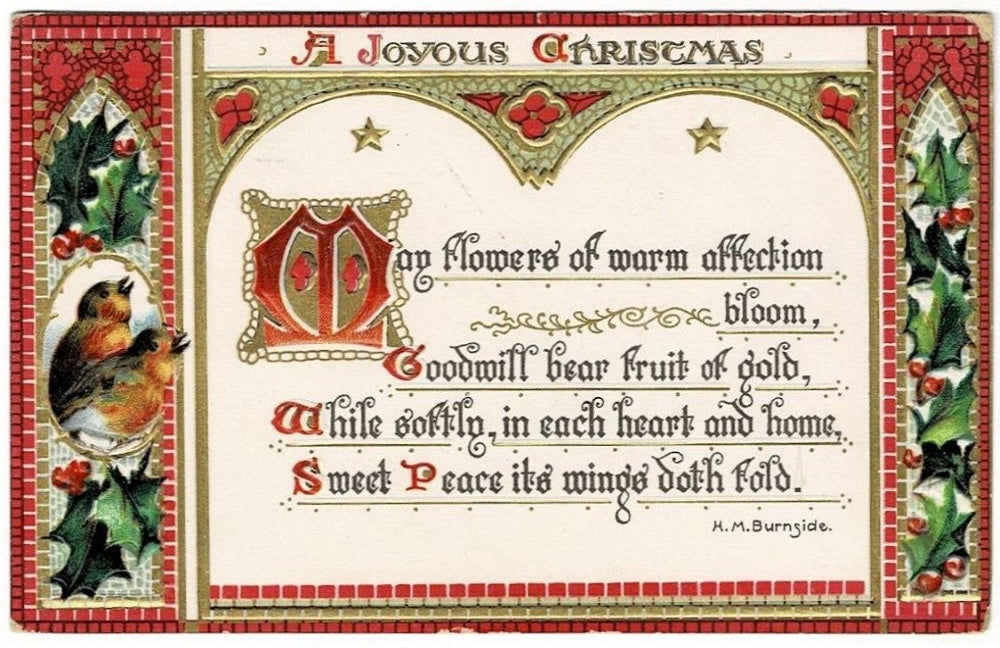 A Joyous Christmas
May flowers of warm affection
bloom,
Goodwill bear fruit of gold,
While softly, in each heart and home,
Sweet Peace its wings doth fold.
H. M. Burnside.